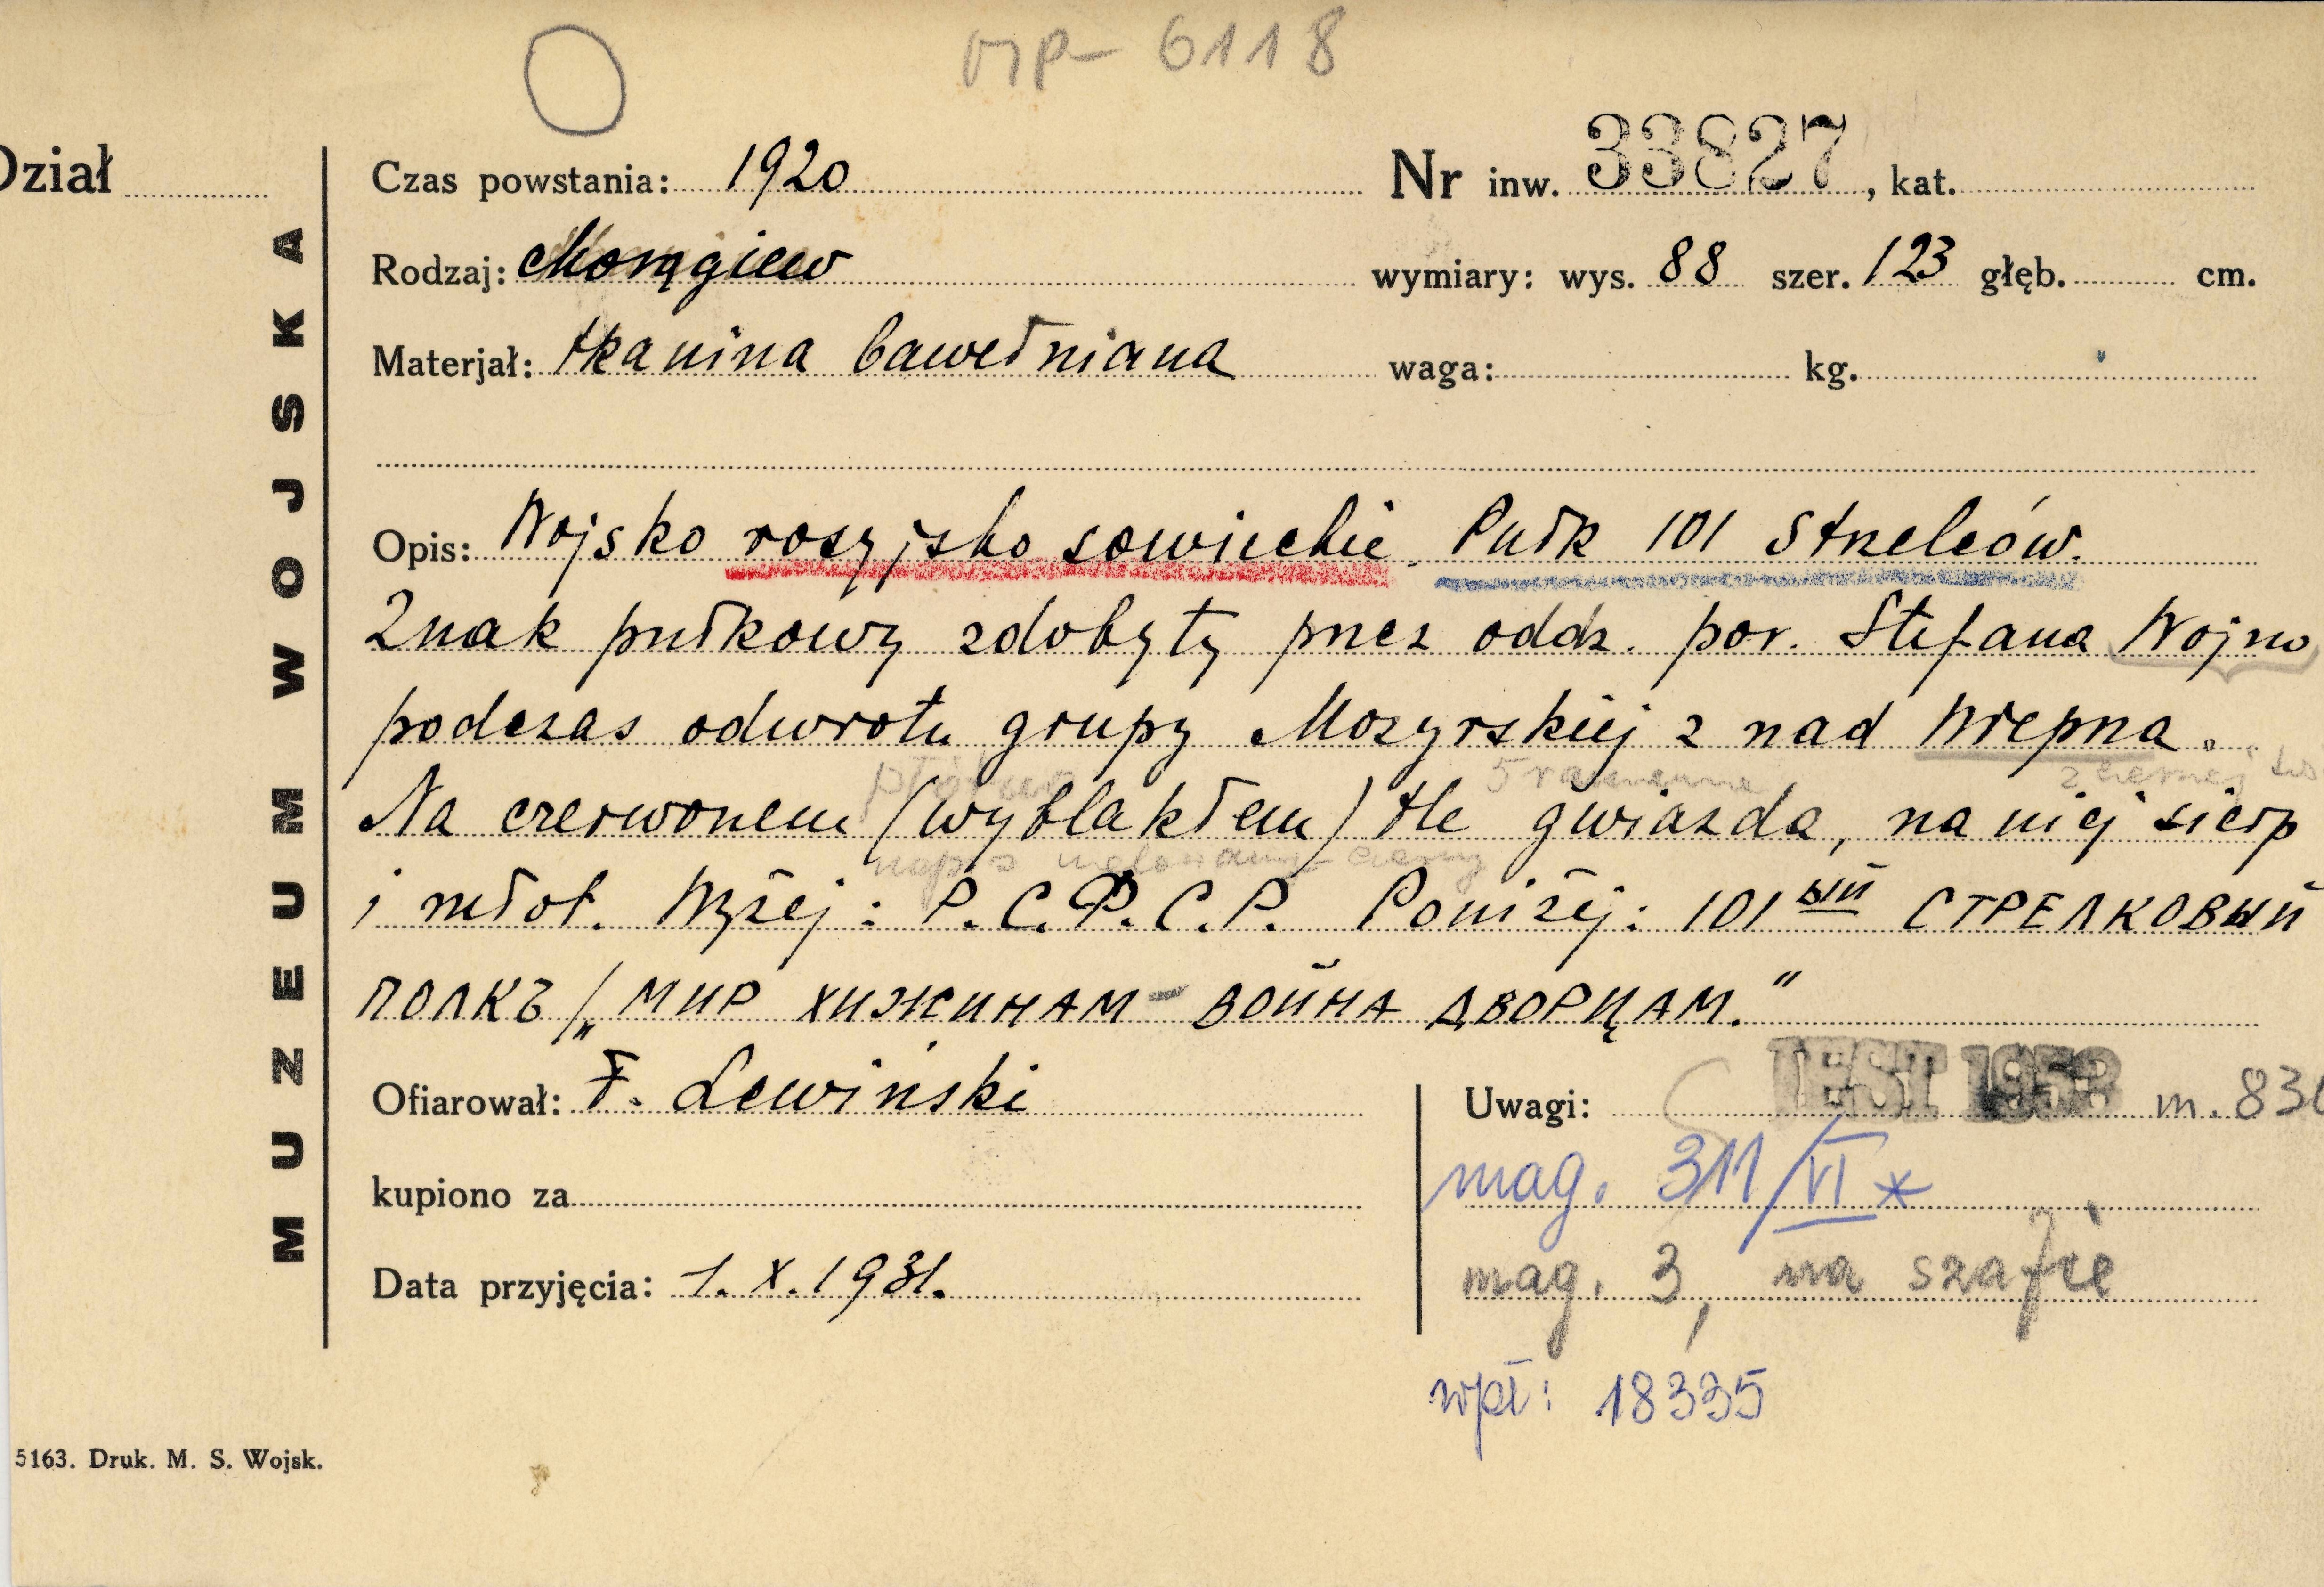 MP- 6118
Dział
MUZEUM WOJSKA
Czas powstania: 1920
Nr inw. 33827, kat.
Rodzaj: Chorągiew
wymiary: wys. 88 szer. 123 głęb. cm.
Materjał: tkanina bawełniana
waga: kg.
Opis: Wojsko rosyjsko sowieckie. Pułk 101 Strzelców.
Znak pułkowy zdobyty przez oddz. por. Stefana Wojno
podczas odwrotu grupy Mozyrskiej z nad Wieprza.
5 ramienna z czernej
Na czerwonem (wyblakłem) tle gwiazda, na niej sierp
napis czarny
i młot. Wyżej: Р.С.Ф.С.Р. Poniżej: 101ый СТРЕЛКОВЫЙ
ПОЛКЪ / „МИР ХИЖИНАМ - ВОЙНА ДВОРЦАМ."
Ofiarował: F. Lewiński
Uwagi: JEST 1958 m. 830
kupiono za
mag. 311/VI *
Data przyjęcia: 1. X. 1931.
mag. 3, na szafie
wpł: 18335
5163. Druk. M. S. Wojsk.